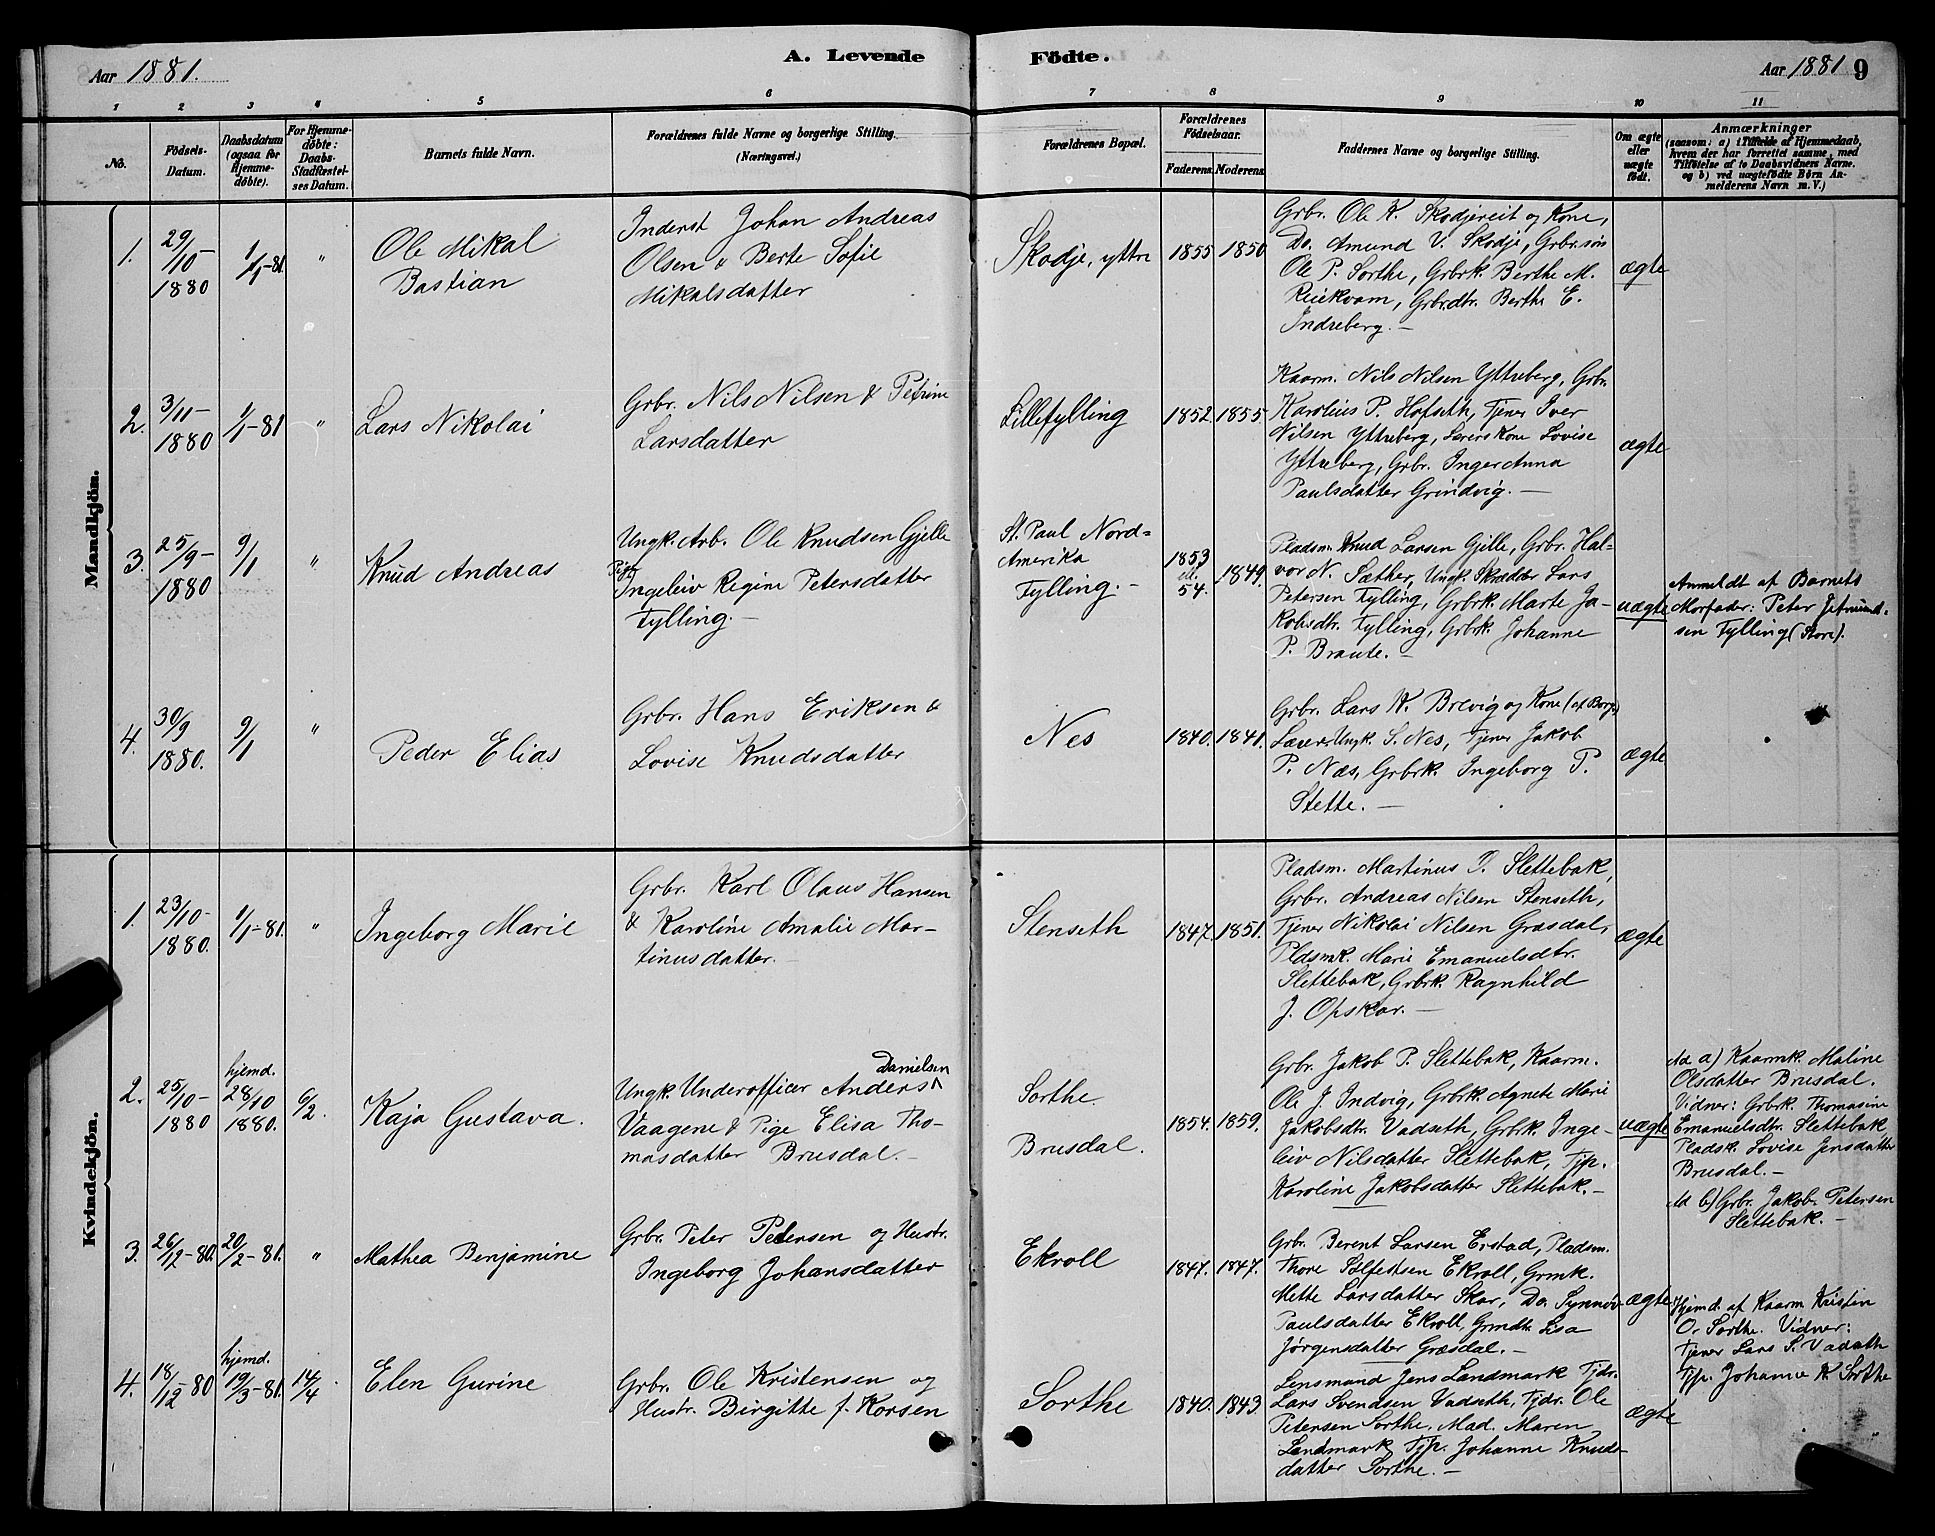 Aar 1881.
A. Levende
Födte.
Aar 1881
9
1 2 3 4 5 6 7 8 9 10 11
No.
Födsels-
Datum.
Daabsdatum
(ogsaa for
Hjemme-
döbte).
For Hjemme-
döbte:
Daabs-
Stadfæstel-
ses Datum.
Barnets fulde Navn.
Forældrenes fulde Navne og borgerlige Stilling.
(Næringsvei.)
Forældrenes Bopæl.
Forældrenes
Födselsaar.
Faderens. Moderens.
Faddernes Navne og borgerlige Stilling.
Om ægte
eller
uægte
födt.
Anmærkninger
(saasom: a) i Tilfælde af Hjemmedaab,
hvem der har forrettet samme, med
Tilföielse af to Daabsvidners Navne.
og b) ved uægtefödte Börn An-
melderens Navn m. V.)
Mandkjön.
1.
29/10-
1880
1/1-81.
"
Ole Mikal
Bastian
Inderst Johan Andreas
Olsen & Berte Sofie
Mikalsdatter
Skodje, yttre
1855 1850
Grbr. Ole K. Skodjereit og Kone,
Do. Amund V. Skodje, Grbr.søn
Ole P. Sorthe, Grbrk. Berthe M.
Reiekvam, Grbr.dtr. Berthe E.
Indreberg. —
ægte
2.
3/11-
1880
1/1-81
"
Lars Nikolai
Grbr. Nils Nilsen & Petrine
Larsdatter
Lillefylling
1852. 1855.
Kaarm. Nils Nilsen Yttreberg, Grbr.
Karolius P. Hofseth, Tjener Iver
Nilsen Yttreberg, Lærerskone Lovise
Yttreberg, Grbr. Inger Anna
Paulsdatter Grindvig. —
ægte
3.
25/9-
1880
9/1
"
Knud Andreas
Ungk. Arb. Ole Knudsen Gjelle
Pige
Ingeleiv Regine Petersdatter
Fylling. —
St. Paul Nord=
Amerika
Fylling. —
1853
el.
54.
1849.
Pladsm. Knud Larsen Gjille, Grbr. Hal-
vor N. Sæther, Ungk. Skrædder Lars
Petersen Fylling, Grbrk. Marte Ja-
kobsdtr. Fylling, Grbrk. Johanne
P. Braute. —
uægte
Anmeldt af Barnets
Morfader: Peter Jetmund-
sen Fylling (Store).
4.
30/9
1880.
9/1
"
Peder Elias
Grbr. Hans Eriksen &
Lovise Knudsdatter
Nes
1840. 1841.
Grbr. Lars K. Brevig og Kone (af Borg.)
Lærer Ungk. S. Nes, Tjener Jakob
P. Næs, Grbrk. Ingeborg P.
Stette. —
ægte
Kvindekjön.
1.
23/10-
1880.
1/1-81.
"
Ingeborg Marie
Grbr. Karl Olaus Hansen
& Karoline Amalie Mar-
tinusdatter. —
Stenseth
1847. 1851.
Pladsm. Martinus P. Slettebak,
Grbr. Andreas Nilsen Stenseth,
Tjener Nikolai Nilsen Græsdal,
Pldsmk. Marie Emanuelsdtr.
Slettebak, Grbrk. Ragnhild
J. Opskar. —
ægte
2.
25/10-
1880
hjemd.
28/10
1880.
6/2.
Kaja Gustava.
Danielsen
Ungk. Underofficer Anders
Vaagene & Pige Elisa Tho-
masdatter Brusdal. —
Sorthe.
Brusdal.
1854. 1859.
Grbr. Jakob P. Slettebak, Kaarm.
Ole J. Indvig, Grbrk. Agnete Marie
Jakobsdtr. Vadseth, Grbrk. Inge-
leiv Nilsdatter Slettebak, Tjp.
Karoline Jakobsdatter Slettebak. —
uægte
Ad a) Kaarmk. Maline
Olsdatter Brusdal.
Vidner: Grbrk. Thomasine
Emanuelsdtr. Slettebak
Pladsk. Lovise Jensdatter
Brusdal. —
Ad b) Grbr. Jakob Petersen
Slettebak. —
3.
26/12-80.
20/2-81.
"
Mathea Benjamine
Grbr. Peter Petersen og Hustr.
Ingeborg Johansdatter
Ekroll
1847. 1847.
Grbr. Berent Larsen Erstad, Pladsm.
Thore Selfestsen Ekroll, Grmk.
Mette Larsdatter Skar, Do. Synnøv
Paulsdatter Ekroll, Grmdtr. Lisa
Jørgensdatter Græsdal. —
ægte
4.
18/12-80
hjemd.
19/3-81.
14/4
Elen Gurine
Grbr. Ole Kristensen og
Hustr. Birgitte f. Korsen
Sorthe
1840. 1843.
Lensmand Jens Landmark Tjdr.
Lars Svendsen Vadseth, Tjdr. Ole
Petersen Sorthe, Mad. Maren
Landmark, Tjp. Johanne Knuds-
datter Sorthe. —
ægte
Hjemd. af Kaarm. Kristen
O. Sorthe. Vidner:
Tjener Lars S. Vadseth
Tjp. Johanne K. Sorthe